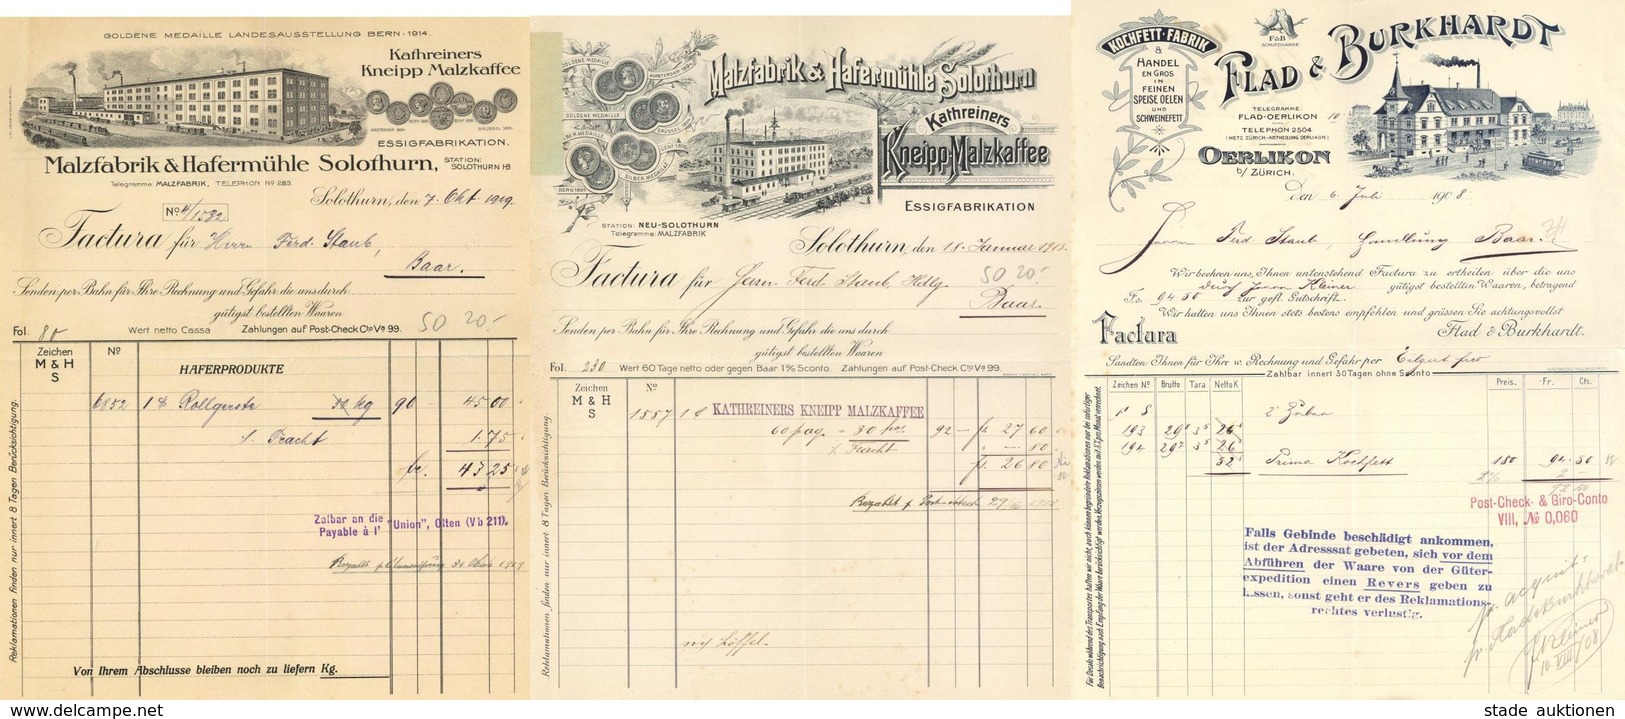 GOLDENE MEDAILLE LANDESAUSSTELLUNG BERN - 1914.
Kathreiners
Kneipp Malzkaffee
AMSTERDAM 1894.
BRÜSSEL 1891.
ESSIGFABRIKATION.
Malzfabrik & Hafermühle Solothurn,
STATION:
SOLOTHURN HB
Telegramme: MALZFABRIK, TELEPHON No 283.
Solothurn, den 7. Okt. 1919.
No 4/1532
Factura für Herrn Ferd. Staub,
Baar.
Senden per Bahn für Ihre Rechnung und Gefahr die uns durch
gütigst bestellten Waaren
Fol. 80 Wert netto Cassa Zahlungen auf Post-Check Cto Va 99. 50 20.-
Zeichen No
M & H
S
HAFERPRODUKTE
6852 1 S Rollgerste kg 90 45 00
% Fracht 1.75
fr. 43 25
Zalbar an die
Payable à l' "Union", Olten (Vb 211).
Reklamationen finden nur innert 8 Tagen Berücksichtigung.
Von Ihrem Abschlusse bleiben noch zu liefern Kg.
GOLDENE MEDAILLE
AMSTERDAM 1894
GOLDENE MEDAILLE
BRÜSSEL 1891
SILBER MEDAILLE
GENF 1896
SILBER MEDAILLE
BERN 1895
Malzfabrik & Hafermühle Solothurn
Kathreiners
Kneipp-Malzkaffee
ESSIGFABRIKATION
STATION: NEU-SOLOTHURN
Telegramme: MALZFABRIK
Solothurn, den 18. Januar 1908.
Factura für Herrn Ferd. Staub, Hdlg. 50 20.-
Baar.
Senden per Bahn für Ihre Rechnung und Gefahr die uns durch
gütigst bestellten Waaren
Fol. 230 Wert 60 Tage netto oder gegen Baar 1% Sconto. Zahlungen auf Post-Check Cto Va 99.
Zeichen No
M & H
S
1557 1 C KATHREINERS KNEIPP MALZKAFFEE
60 pag = 30 92 fr. 27 60
% Fracht 80
fr. 26 80
Reklamationen finden nur innert 8 Tagen Berücksichtigung.
KOCHFETT-FABRIK
&
HANDEL
EN GROS
IN
FEINEN
SPEISE OELEN
UND
SCHWEINEFETT
F&B
SCHUTZMARKE
FLAD & BURKHARDT
TELEGRAMME:
FLAD-OERLIKON
TELEPHON 2504
(NETZ ZÜRICH-ABTHEILUNG OERLIKON)
OERLIKON
b/ ZÜRICH.
Den 6. Juli 1908.
Herrn Ferd Staub, Handlung Baar.
Wir beehren uns, Ihnen untenstehend Factura zu ertheilen über die uns
durch Herrn Kleiner gütigst bestellten Waaren, betragend
Fs. 94 50 zur gefl. Gutschrift.
Wir halten uns Ihnen stets bestens empfohlen und grüssen Sie achtungsvollst
Factura Flad & Burkhardt.
Sandten Ihnen für Ihre w. Rechnung und Gefahr per Eilgut fco
Zahlbar innert 30 Tagen ohne Sconto
Zeichen No Brutto Tara Netto K Preis. Fr. Cts.
2 Kübel
193 29 3 26
194 29 3 26
52 Prima Kochfett 180 94 50
Post-Check- & Giro-Conto
VIII, No 0,060
Falls Gebinde beschädigt ankommen,
ist der Adresssat gebeten, sich vor dem
Abführen der Waare von der Güter-
expedition einen Revers geben zu
lassen, sonst geht er des Reklamations-
rechtes verlustig.
www.delcampe.net
stade auktionen